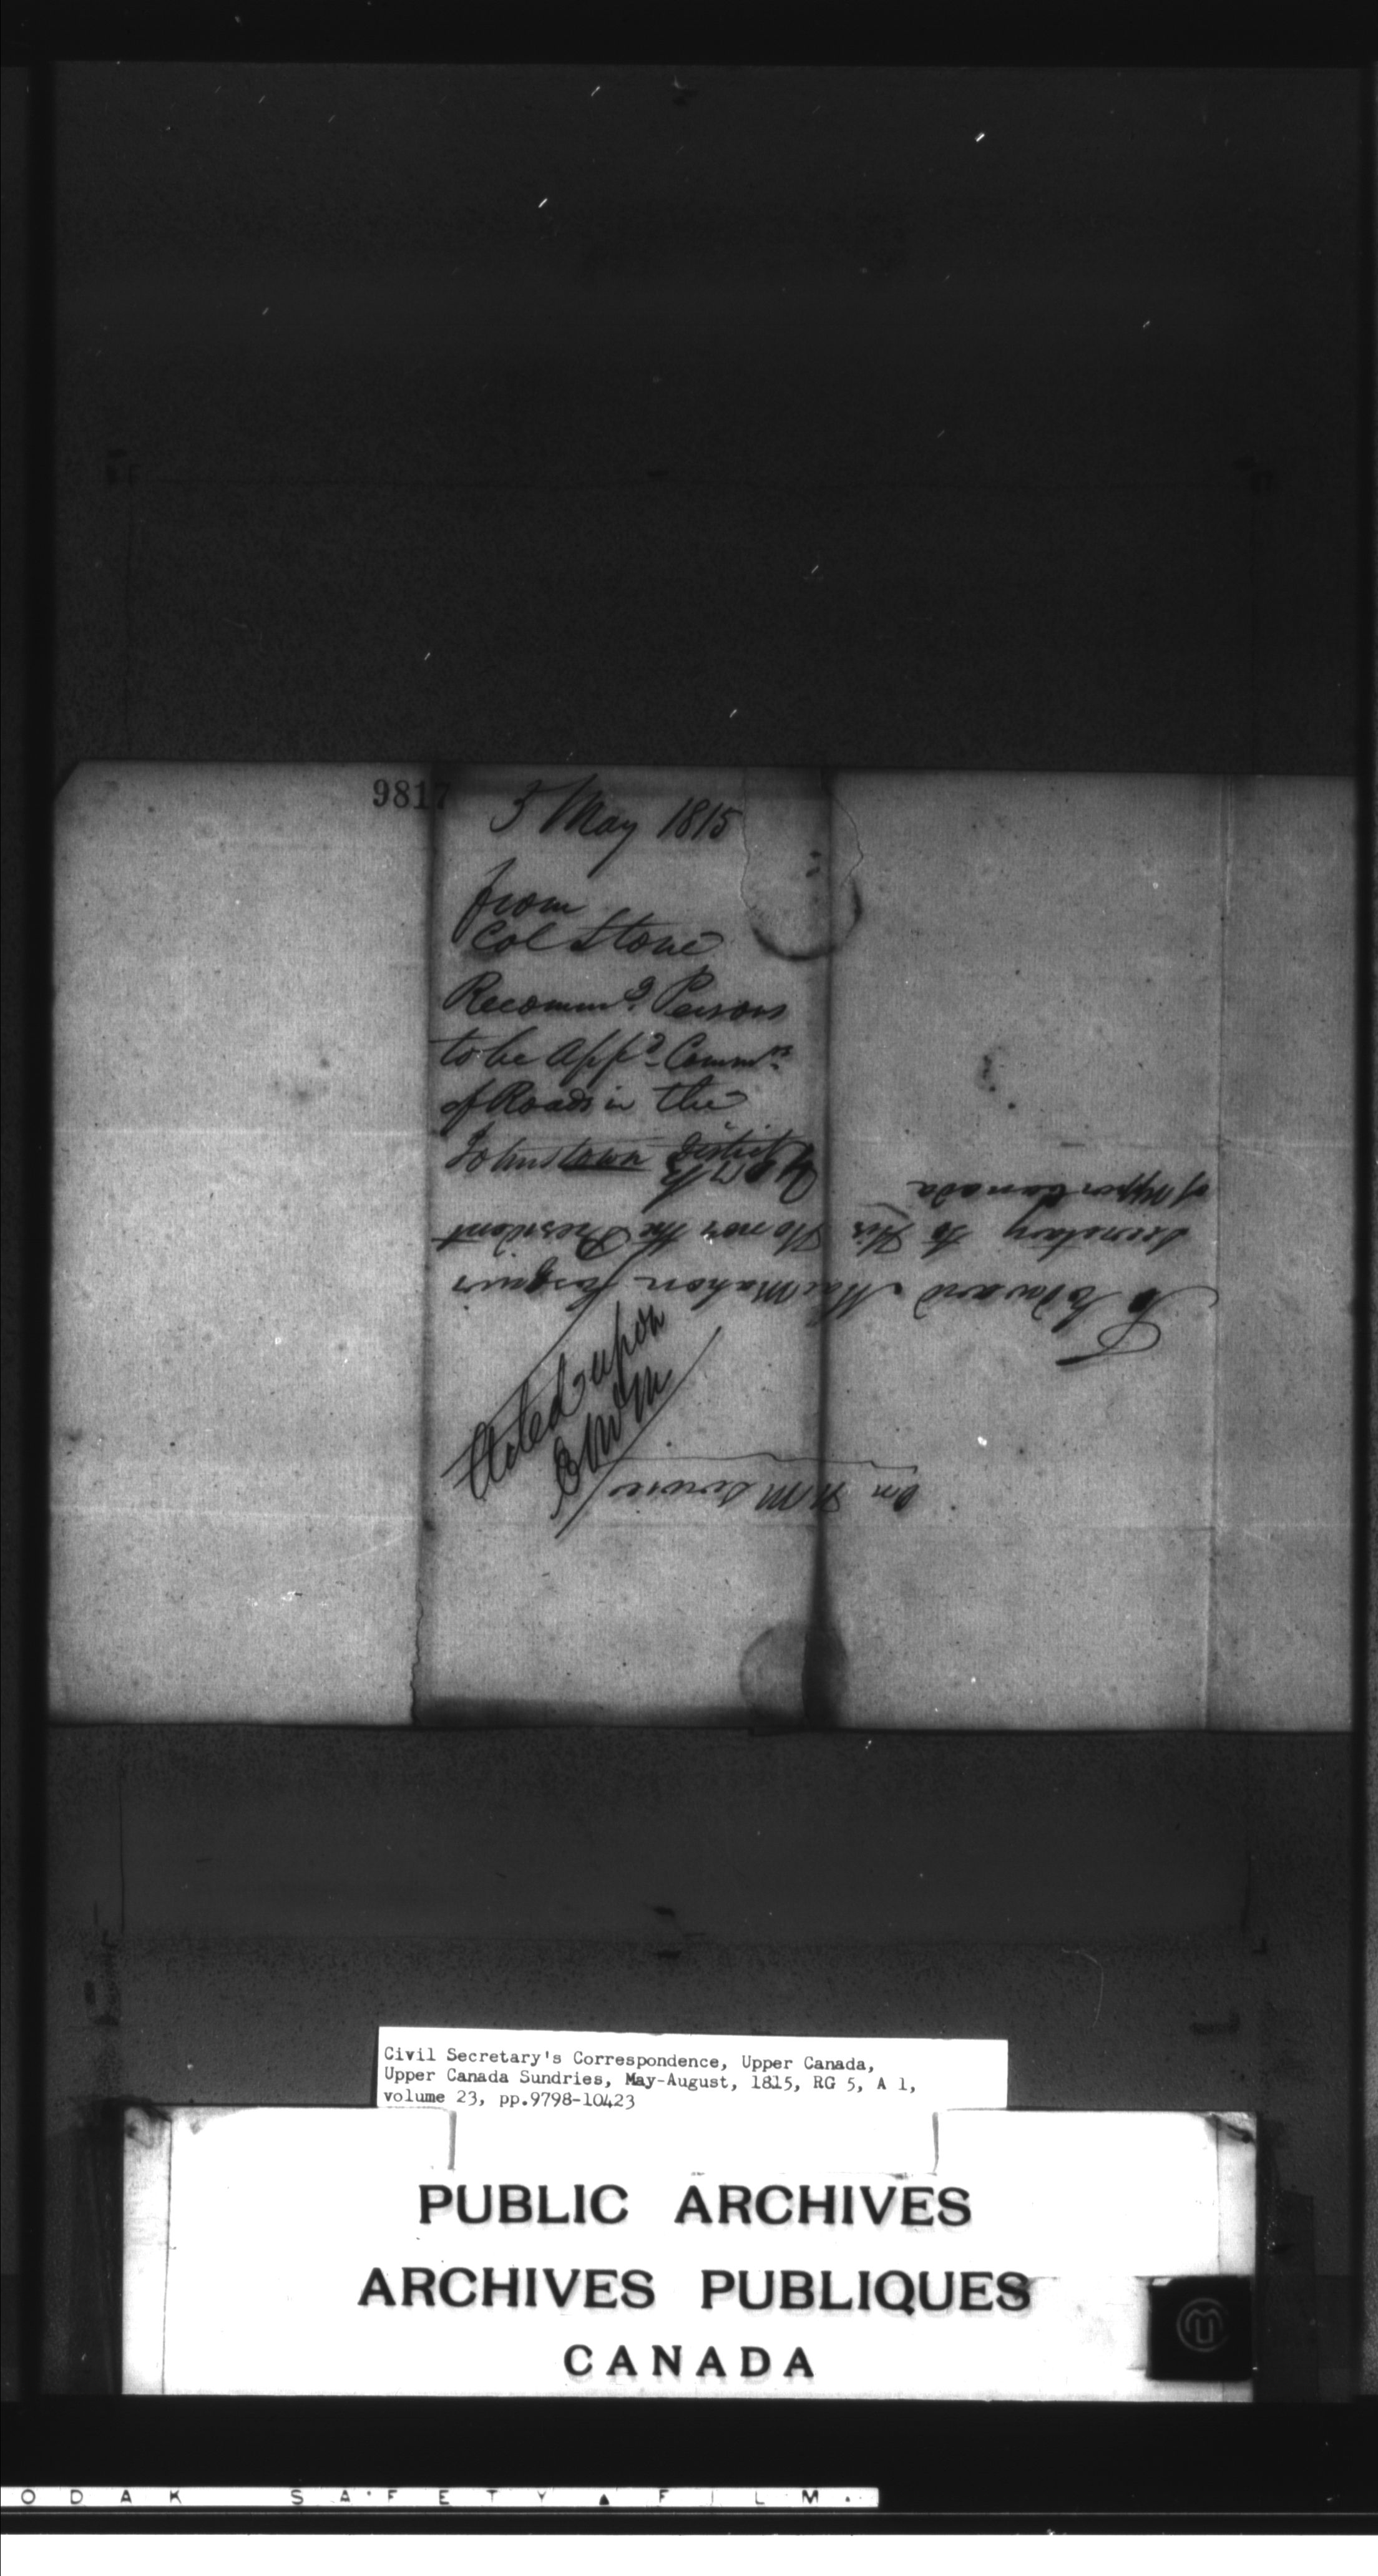 9817
5 May 1815
from
Col Stone
Recommd. Persons
to be Appd. Commrs.
of Roads in the
Johnstown District
To Edward MacMahon Esquire
Secretary to His Honor the President
of Upper Canada
York
Acted upon
EMM
On HM Service
Civil Secretary's Correspondence, Upper Canada,
Upper Canada Sundries, May-August, 1815, RG 5, A 1,
volume 23, pp.9798-10423
PUBLIC ARCHIVES
ARCHIVES PUBLIQUES
CANADA
ODAK SAFETY ▲ FILM